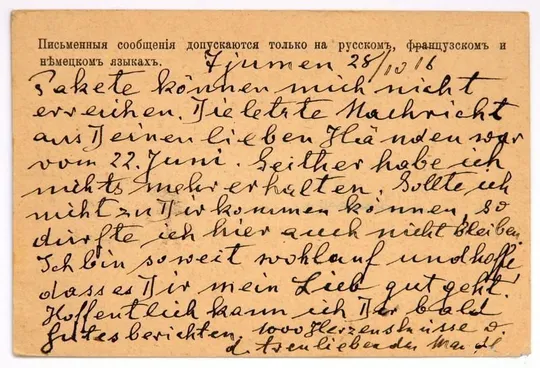 Письменныя сообщенія допускаются только на русскомъ, французскомъ и
нѣмецкомъ языкахъ.
Tjumen 28/10 16
Pakete können mich nicht
erreichen. Die letzte Nachricht
aus Deinen lieben Händen war
vom 22. Juni. Seither habe ich
nichts mehr erhalten. Sollte ich
nicht zu Dir kommen können, so
dürfte ich hier auch nicht bleiben.
Ich bin soweit wohlauf und hoffe,
dass es Dir mein Lieb gut geht.
Hoffentlich kann ich Dir bald
gutes berichten. 1000 Herzensküsse v.